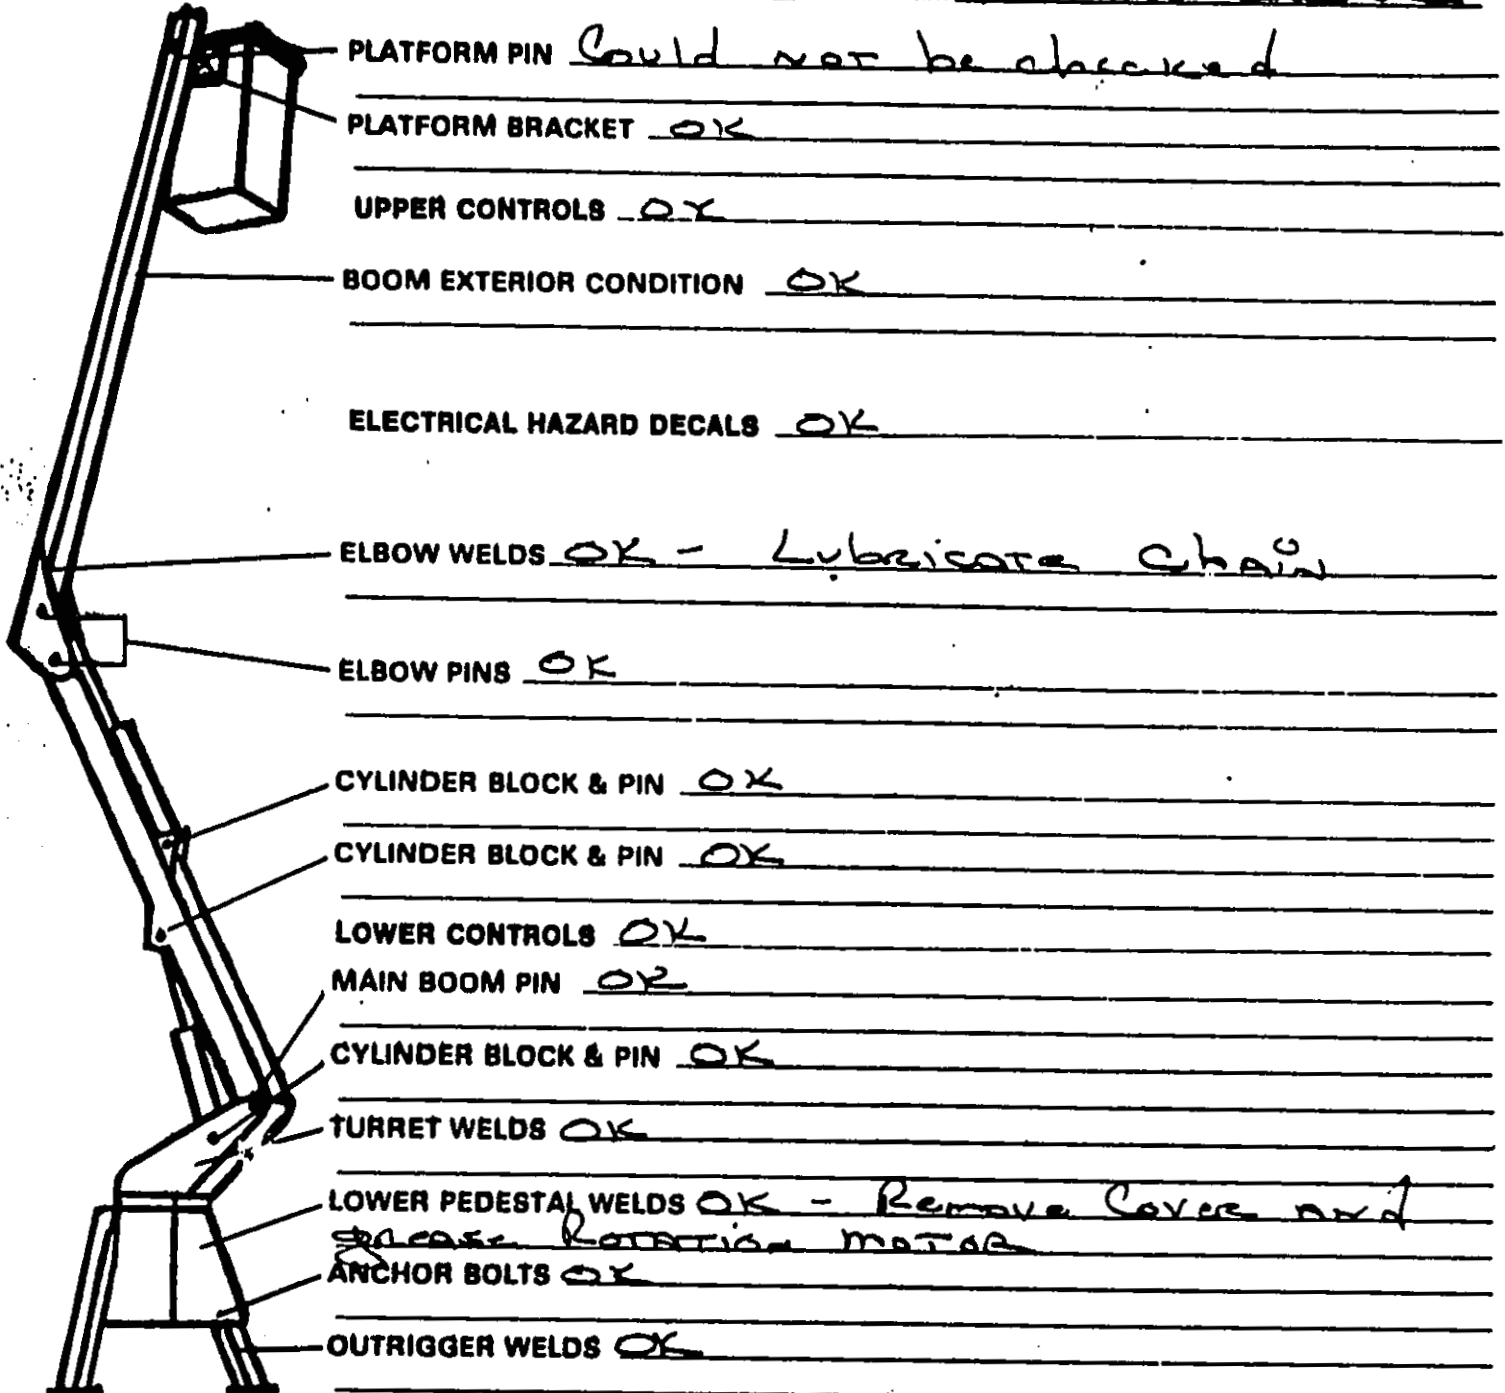 PLATFORM PIN Could not be checked
PLATFORM BRACKET OK
UPPER CONTROLS OK
BOOM EXTERIOR CONDITION OK
ELECTRICAL HAZARD DECALS OK
ELBOW WELDS OK - Lubricate Chain
ELBOW PINS OK
CYLINDER BLOCK & PIN OK
CYLINDER BLOCK & PIN OK
LOWER CONTROLS OK
MAIN BOOM PIN OK
CYLINDER BLOCK & PIN OK
TURRET WELDS OK
LOWER PEDESTAL WELDS OK - Remove Cover and
grease Rotation motor
ANCHOR BOLTS OK
OUTRIGGER WELDS OK